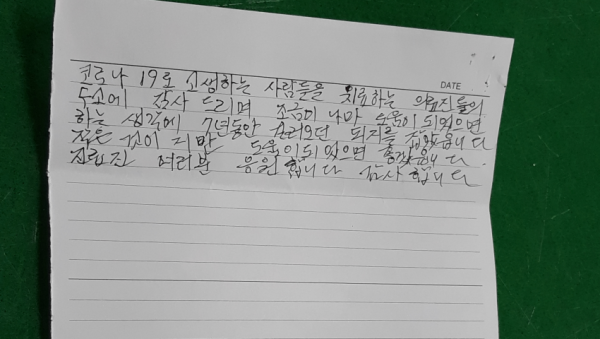 DATE
코로나 19로 고생하는 사람들을 치료하는 의료진들의
노고에 감사 드리며 조금이 나마 도움이 되었으면
하는 생각에 7년동안 모려오던 돼지를 잡았습니다
작은 것이 지만 도움이되 었으면 좋겠습니다
의료진 여러분 응원 합니다 감사 합니다